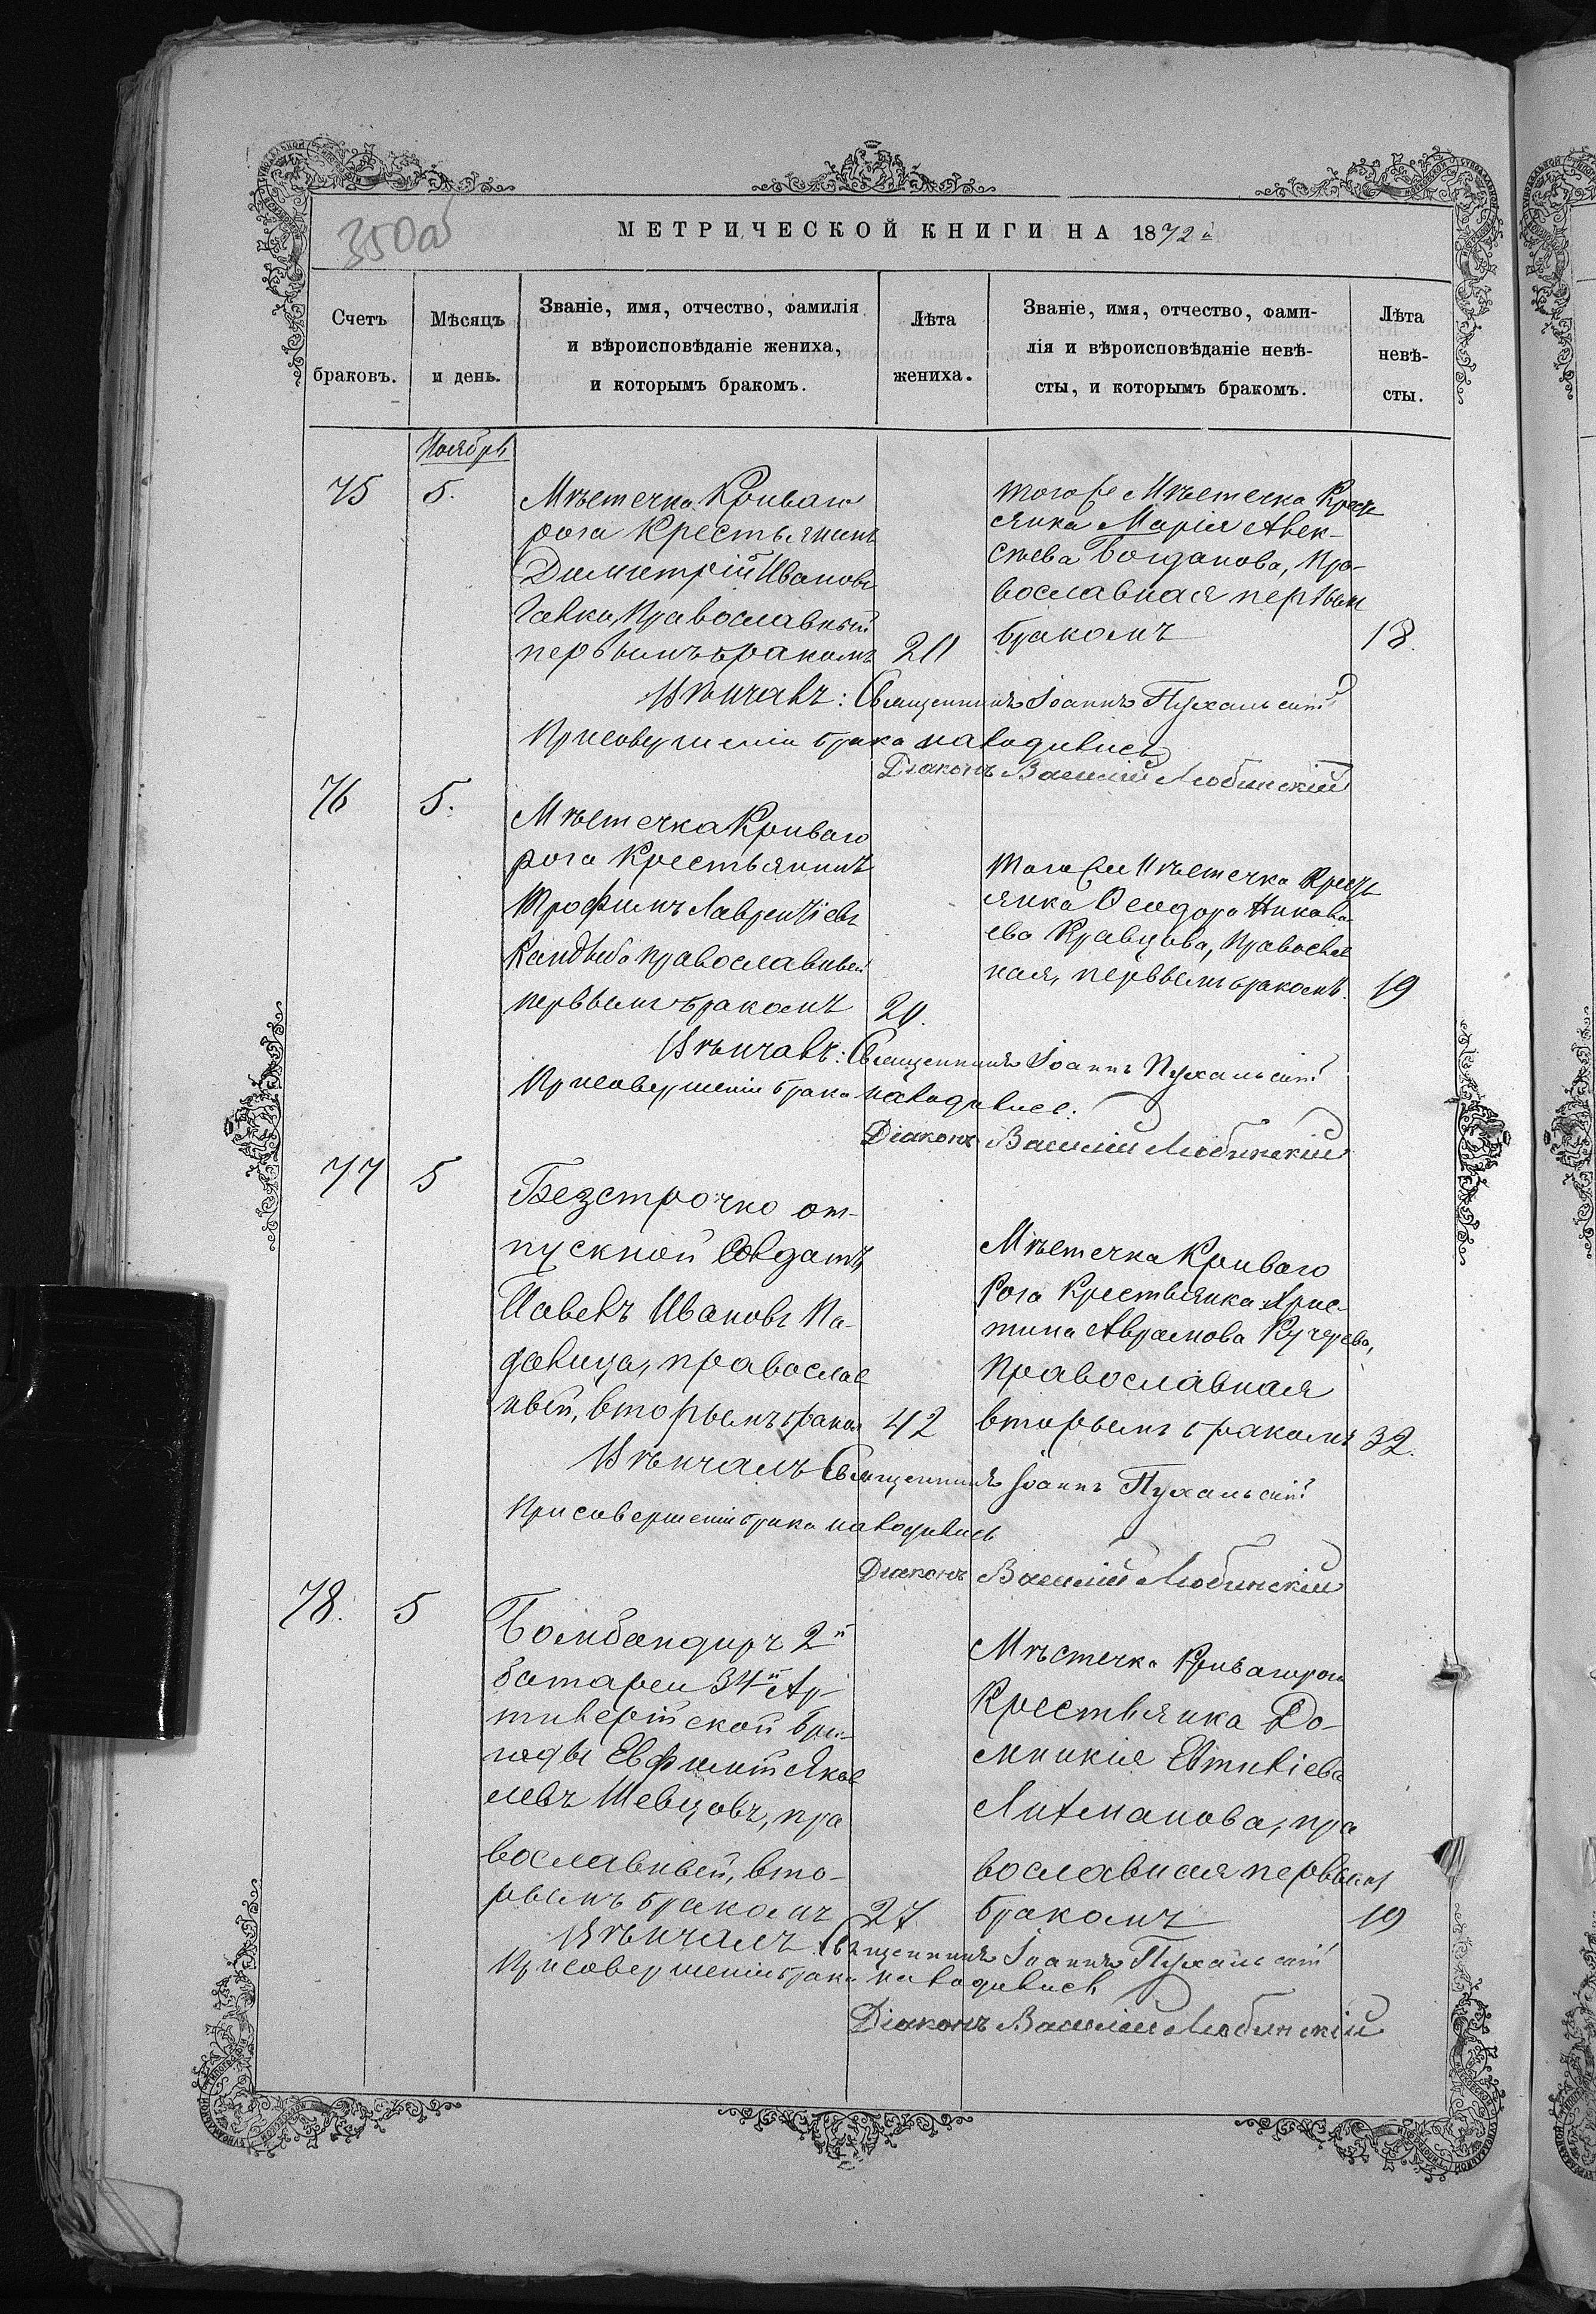 350об
МЕТРИЧЕСКОЙ КНИГИ НА 1872й
Счетъ браковъ.
Мѣсяцъ и день.
Званіе, имя, отчество, фамилія
и вѣроисповѣданіе жениха,
и которымъ бракомъ.
Лѣта
жениха.
Званіе, имя, отчество, фами-
лія и вѣроисповѣданіе невѣ-
сты, и которымъ бракомъ.
Лѣта
невѣ-
сты.
Ноябрь
75
5.
Мѣстечка Криваго
рога Крестьянинъ
Димитрій Ивановъ
Галка, Православный
первымъ бракомъ
20
Того же Мѣстечка Кресть
янка Марія Алек-
сѣева Богданова, Пра-
вославная первым
бракомъ
18.
Вѣнчалъ: Священникъ Іоаннъ Пухальскій
При совершеніи брака находились
Діаконъ Василій Любинскій
76
5.
Мѣстечка Криваго
рога Крестьянинъ
Трофимъ Лаврентіевъ
Кандыба православный
первымъ бракомъ
20.
Того же Мѣстечка Кресть
янка Ѳеодора Никола
ева Кравцова, Православ
ная, первымъ бракомъ.
19
Вѣнчалъ: Священникъ Іоаннъ Пухальскій
При совершеніи брака находились.
Діаконъ Василій Любинскій
77
5
Безстрочно от-
пускной Солдатъ
Павелъ Ивановъ Па-
далица, православ
ный, вторымъ бракомъ
42
Мѣстечка Криваго
Рога Крестьянка Хрис
тина Аврамова Кучерева,
Православная
вторымъ бракомъ
32.
Вѣнчалъ Священникъ Іоаннъ Пухальскій
При совершеніи брака находились
Діаконъ Василій Любинскій
78.
5
Бомбандиръ 2й
батареи 34й Ар-
тилерійской бри-
гады Евфимій Яков
левъ Шевцовъ, пра
вославный, вто-
рымъ бракомъ
27.
Мѣстечка Криваго рога
Крестьянка До-
мникія Евтихіева
Литманова, пра
вославная первымъ
бракомъ
19
Вѣнчалъ Священникъ Іоаннъ Пухальскій
При совершеніи брака находились
Діаконъ Василій Любинскій